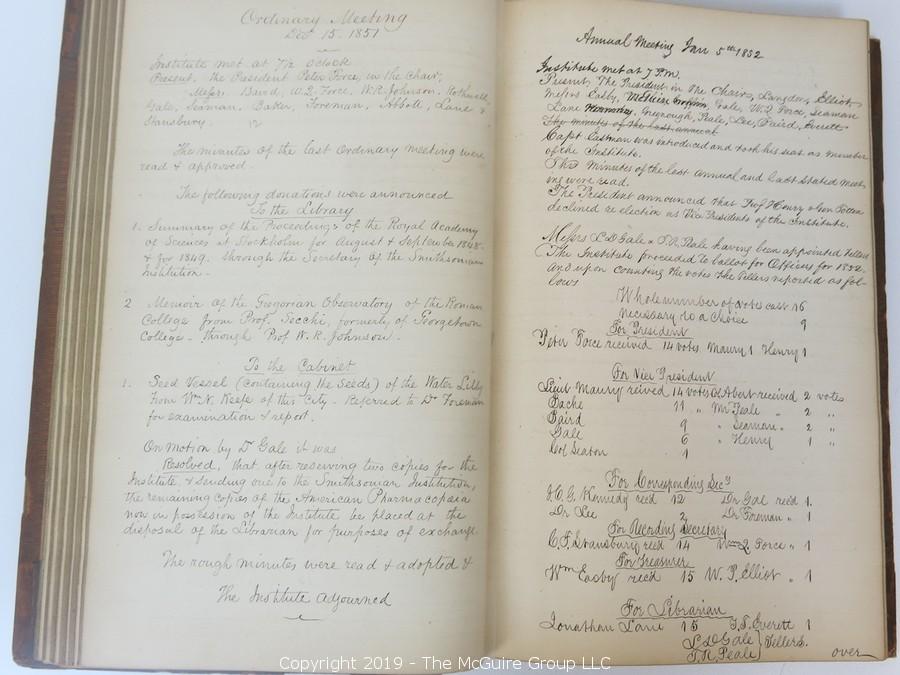 Ordinary Meeting
Dec 15. 1851
Institute met at 7½ o'clock
Present. the President Peter Force, in the Chair,
Messrs. Baird, W.Q. Force, W.R. Johnson, Rothwell
Gale, Seaman, Baker, Foreman, Abbott, Lane &
Stansbury. 12
The minutes of the last Ordinary meeting were
read & approved.
The following donations were announced
To the Library
1. Summary of the Proceedings of the Royal Academy
of Sciences at Stockholm for August & September 1848
& for 1849. through the Secretary of the Smithsonian
Institution.
2 Memoir of the Gregorian Observatory of the Roman
College from Prof. Secchi, formerly of Georgetown
College. through Prof W. R. Johnson.
To the Cabinet
1. Seed Vessel (containing the Seeds) of the Water Lilly
from Wm N. Keefe of this City. Referred to Dr Foreman
for examination & report.
On Motion by Dr Gale it was
Resolved, that after reserving two copies for the
Institute, & sending one to the Smithsonian Institution,
the remaining copies of the American Pharmacopaia
now in possession of the Institute be placed at the
disposal of the Librarian for purposes of exchange.
The rough minutes were read & adopted &
The Institute Adjourned
Annual Meeting Jan 5th 1852
Institute met at 7 P.m.
Present, The President in the Chair, Langdon, Elliot
Messrs Easby, Gale, W.Q. Force, Seaman
Lane Greenough, Peale, Lee, Baird, Everett
The minutes of the last annual
Capt Eastman was introduced and took his seat as member
of the Institute.
The Minutes of the last Annual and last Stated Meet
ing were read.
The President announced that Prof Henry & Gen Totten
declined re election as Vice Presidents of the Institute.
Messrs L D Gale & T. R. Peale having been appointed Tellers
The Institute proceeded to ballot for Officers for 1852.
and upon counting the votes the Tellers reported as fol-
lows
Whole number of votes cast 16
necessary to a choice 9
For President
Peter Force received 14 votes Maury 1 Henry 1
For Vice President
Lieut Maury reived 14 votes Col Abert received 2 votes
Bache 11 " Mr Peale " 2 "
Baird 9 " Seaman " 2 "
Gale 6 " Henry 1 "
Col Seaton 1
For Corresponding Secy
J.C.G. Kennedy recd 12 Dr Gal recd 1.
Dr Lee 2 Dr Foreman " 1
For Recording Secretary
C. F. Stansbury recd 14 Wm Q Force " 1
For Treasurer
Wm Easby rec'd 15 W. P. Elliot " 1
For Librarian
Jonathan Lane 15 T. S. Everett 1
L D Gale
T. R. Peale } Tellers.
over
Copyright 2019 - The McGuire Group LLC